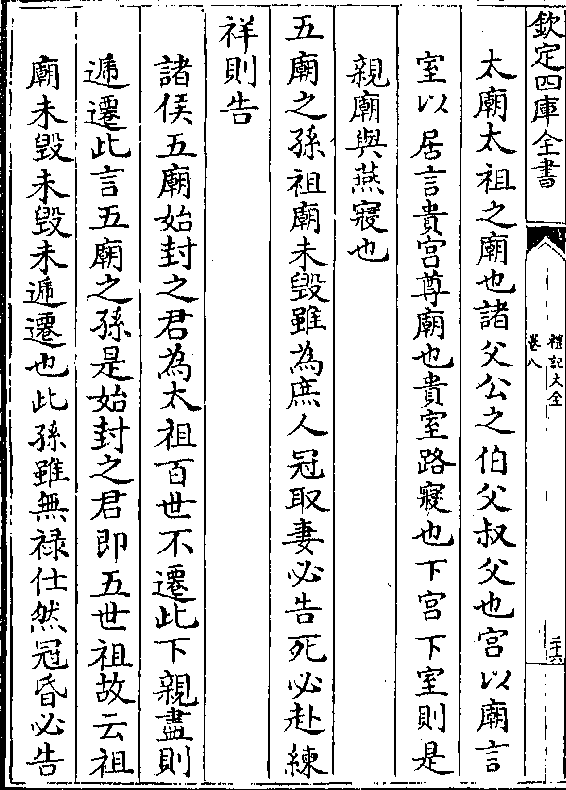 欽定四庫全書
禮記大全
卷八
二十六
太廟太祖之廟也諸父公之伯父叔父也宫以廟言
室以居言貴宫尊廟也貴室路寢也下宫下室則是
親廟與燕寢也
五廟之孫祖廟未毁雖為庶人冠取妻必告死必赴練
祥則告
諸侯五廟始封之君為太祖百世不遷此下親盡則
遞遷此言五廟之孫是始封之君即五世祖故云祖
廟未毁未毁未遞遷也此孫雖無禄仕然冠昏必告